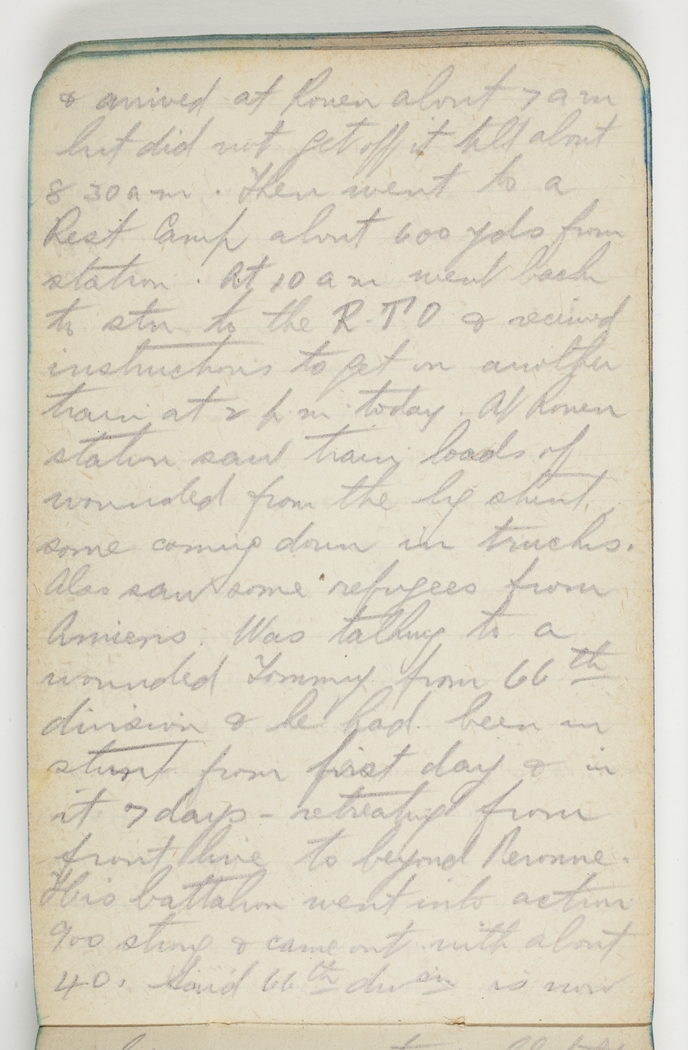 & arrived at Rouen about 7 am
but did not get off it till about
8 30 am. Then went to a
Rest Camp about 600 yds from
station. At 10 am went back
to stn to the R.T.O & received
instructions to get on another
train at 2 p m today. At Rouen
station saw train loads of
wounded from the big stunt,
some coming down in trucks.
Also saw some refugees from
Amiens. Was talking to a
wounded Tommy from 66th
division & he had been in
stunt from first day & in
it 7 days - retreating from
front line to beyond Peronne.
His battalion went into action
900 strong & came out with about
40. Said 66th divsn is now